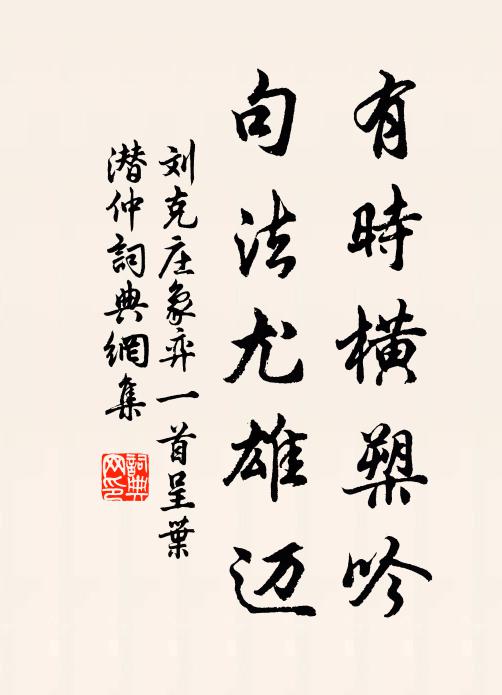 有時橫槊吟
句法尤雄迈
刘克庄象弈一首呈葉
潜仲詞典網集
詞典網印